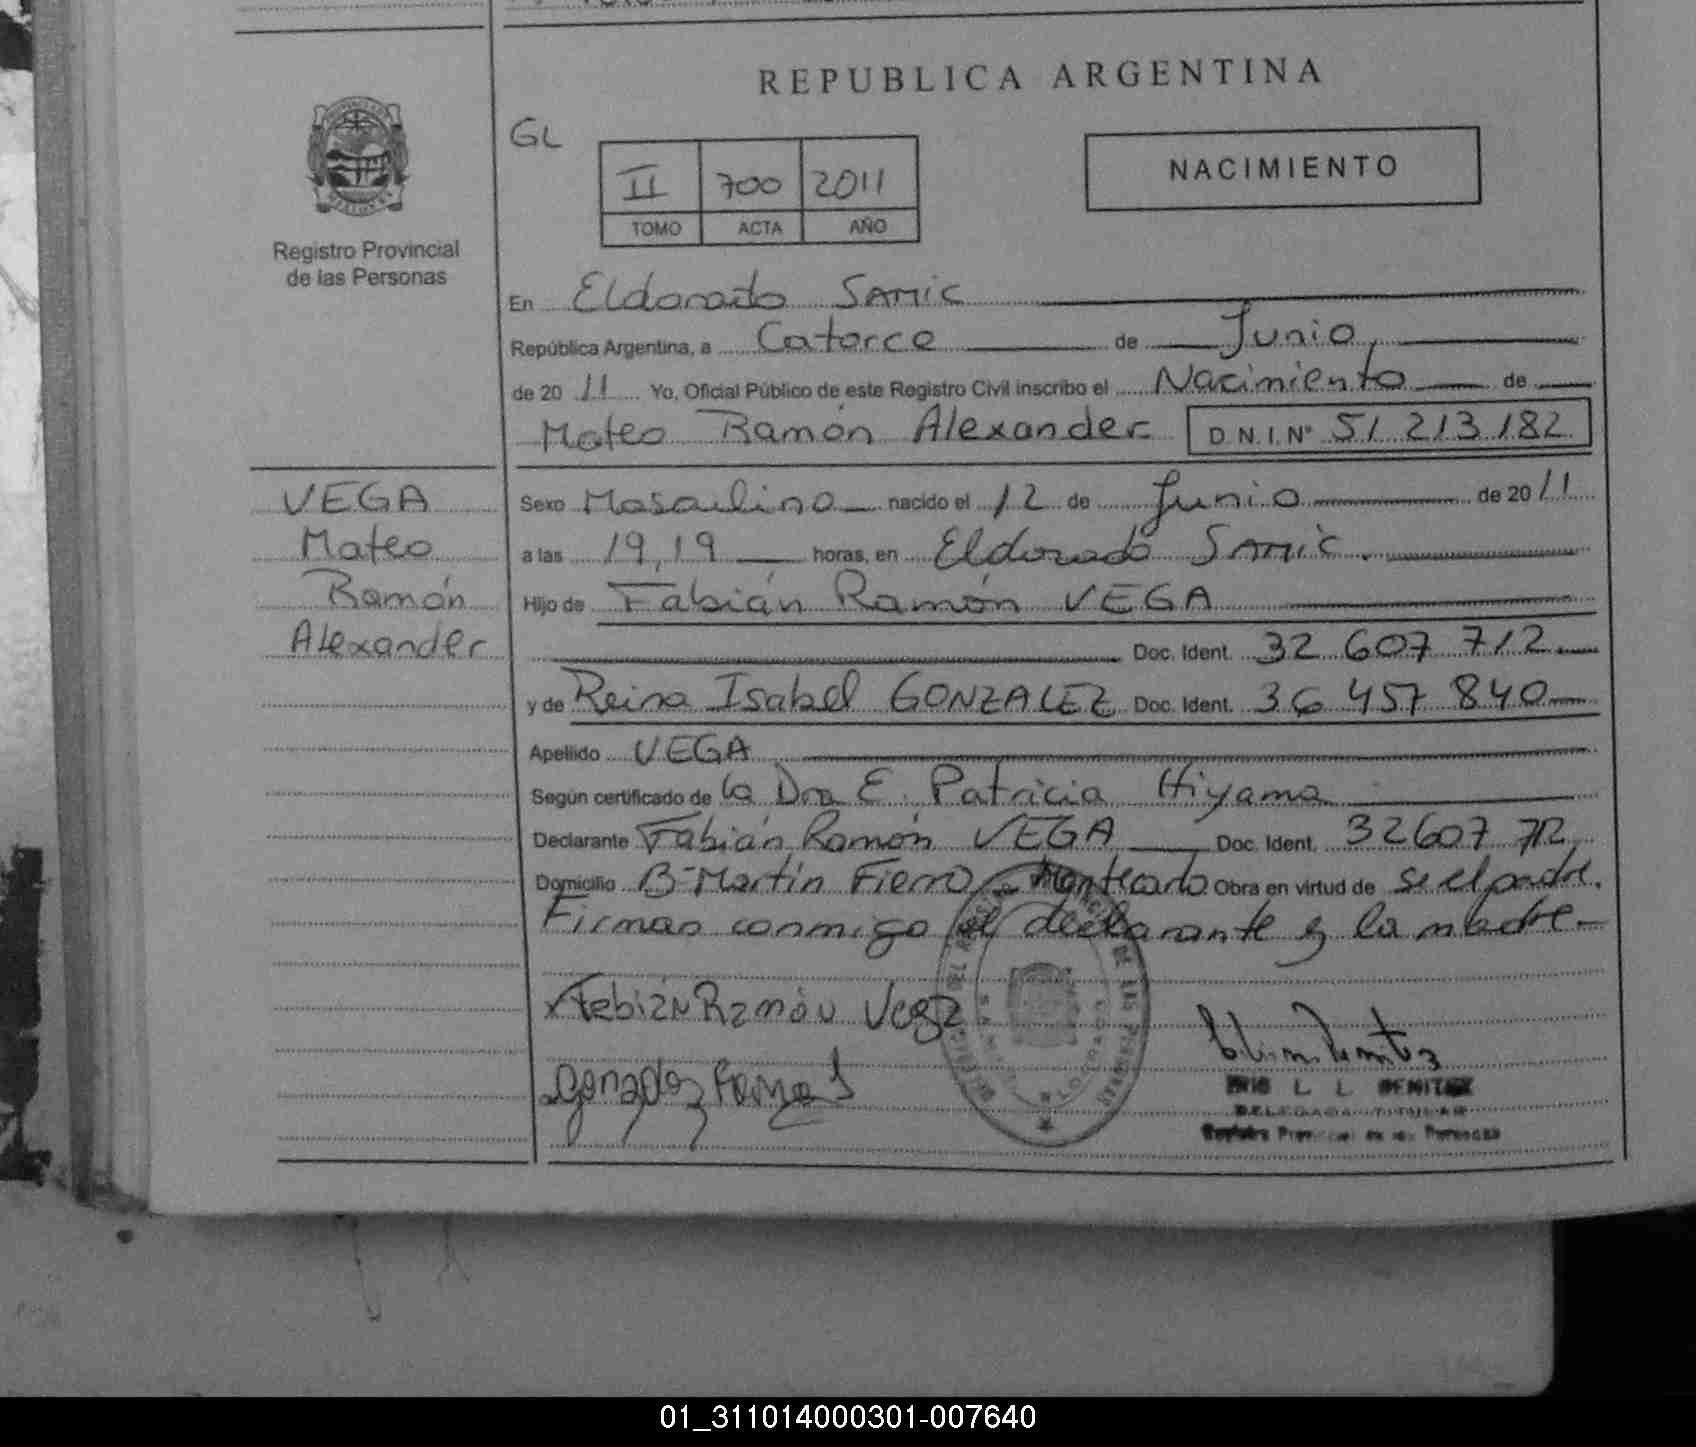 REPUBLICA ARGENTINA
GL
II 700 2011
TOMO ACTA AÑO
NACIMIENTO
Registro Provincial
de las Personas
En Eldorado SAMIC
República Argentina, a Catorce de Junio,
de 2011 Yo, Oficial Público de este Registro Civil inscribo el Nacimiento de
Mateo Ramón Alexander D.N.I.Nº 51 213 182
VEGA
Mateo
Ramón
Alexander
Sexo Masculino nacido el 12 de Junio de 2011
a las 19,19 horas, en Eldorado SAMIC.
Hijo de Fabián Ramón VEGA
Doc. Ident. 32 607 712
y de Reina Isabel GONZALEZ Doc. Ident. 36 457 840
Apellido VEGA
Según certificado de la Dra E. Patricia Hiyama
Declarante Fabián Ramón VEGA Doc. Ident. 32607 712
Domicilio B- Martín Fierro - Montecarlo Obra en virtud de se el padre.
Firman conmigo el declarante y la madre-
Fabián Ramón Vega
Gonzalez Reina I
L L BENITEZ
DELEGADA TITULAR
Registro Provincial de las Personas
01_311014000301-007640